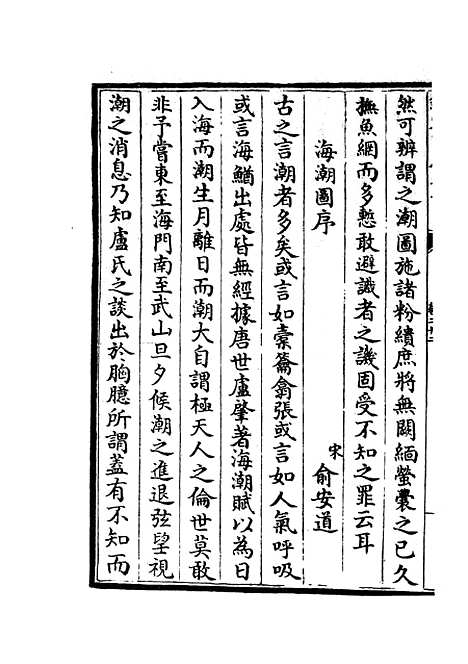 然可辨謂之潮圖施諸粉繢庶將無闕緬螢囊之已久
撫魚網而多慙敢避識者之譏固受不知之罪云耳
海潮圖序
宋俞安道
古之言潮者多矣或言如橐籥翕張或言如人氣呼吸
或言海鰌出處皆無經據唐世盧肇著海潮賦以為日
入海而潮生月離日而潮大自謂極天人之倫世莫敢
非予嘗東至海門南至武山旦夕候潮之進退弦望視
潮之消息乃知盧氏之談出於胸臆所謂蓋有不知而